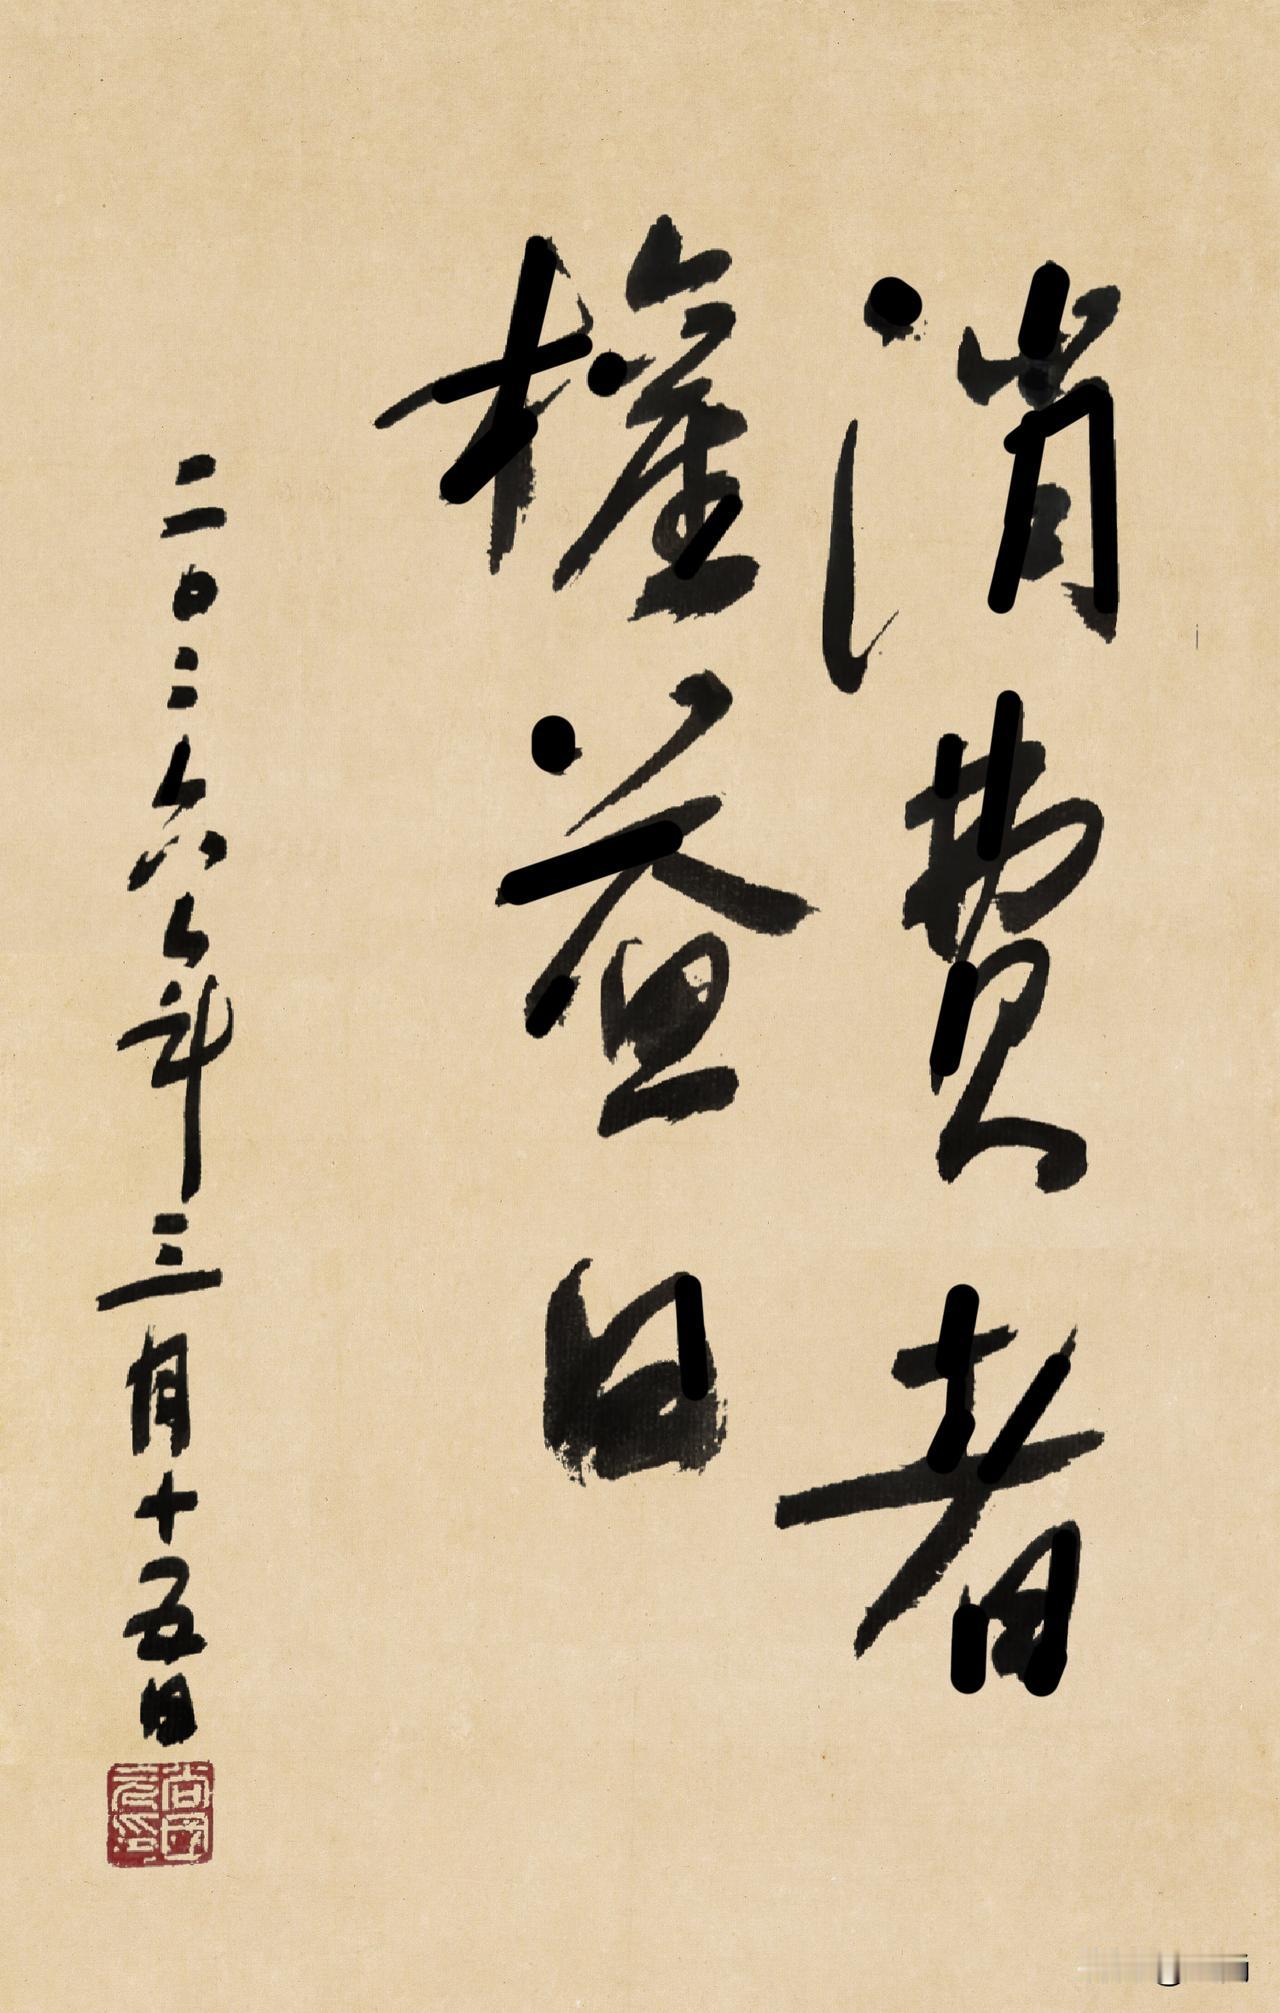 消費者
權益日
二〇二六年三月十五日